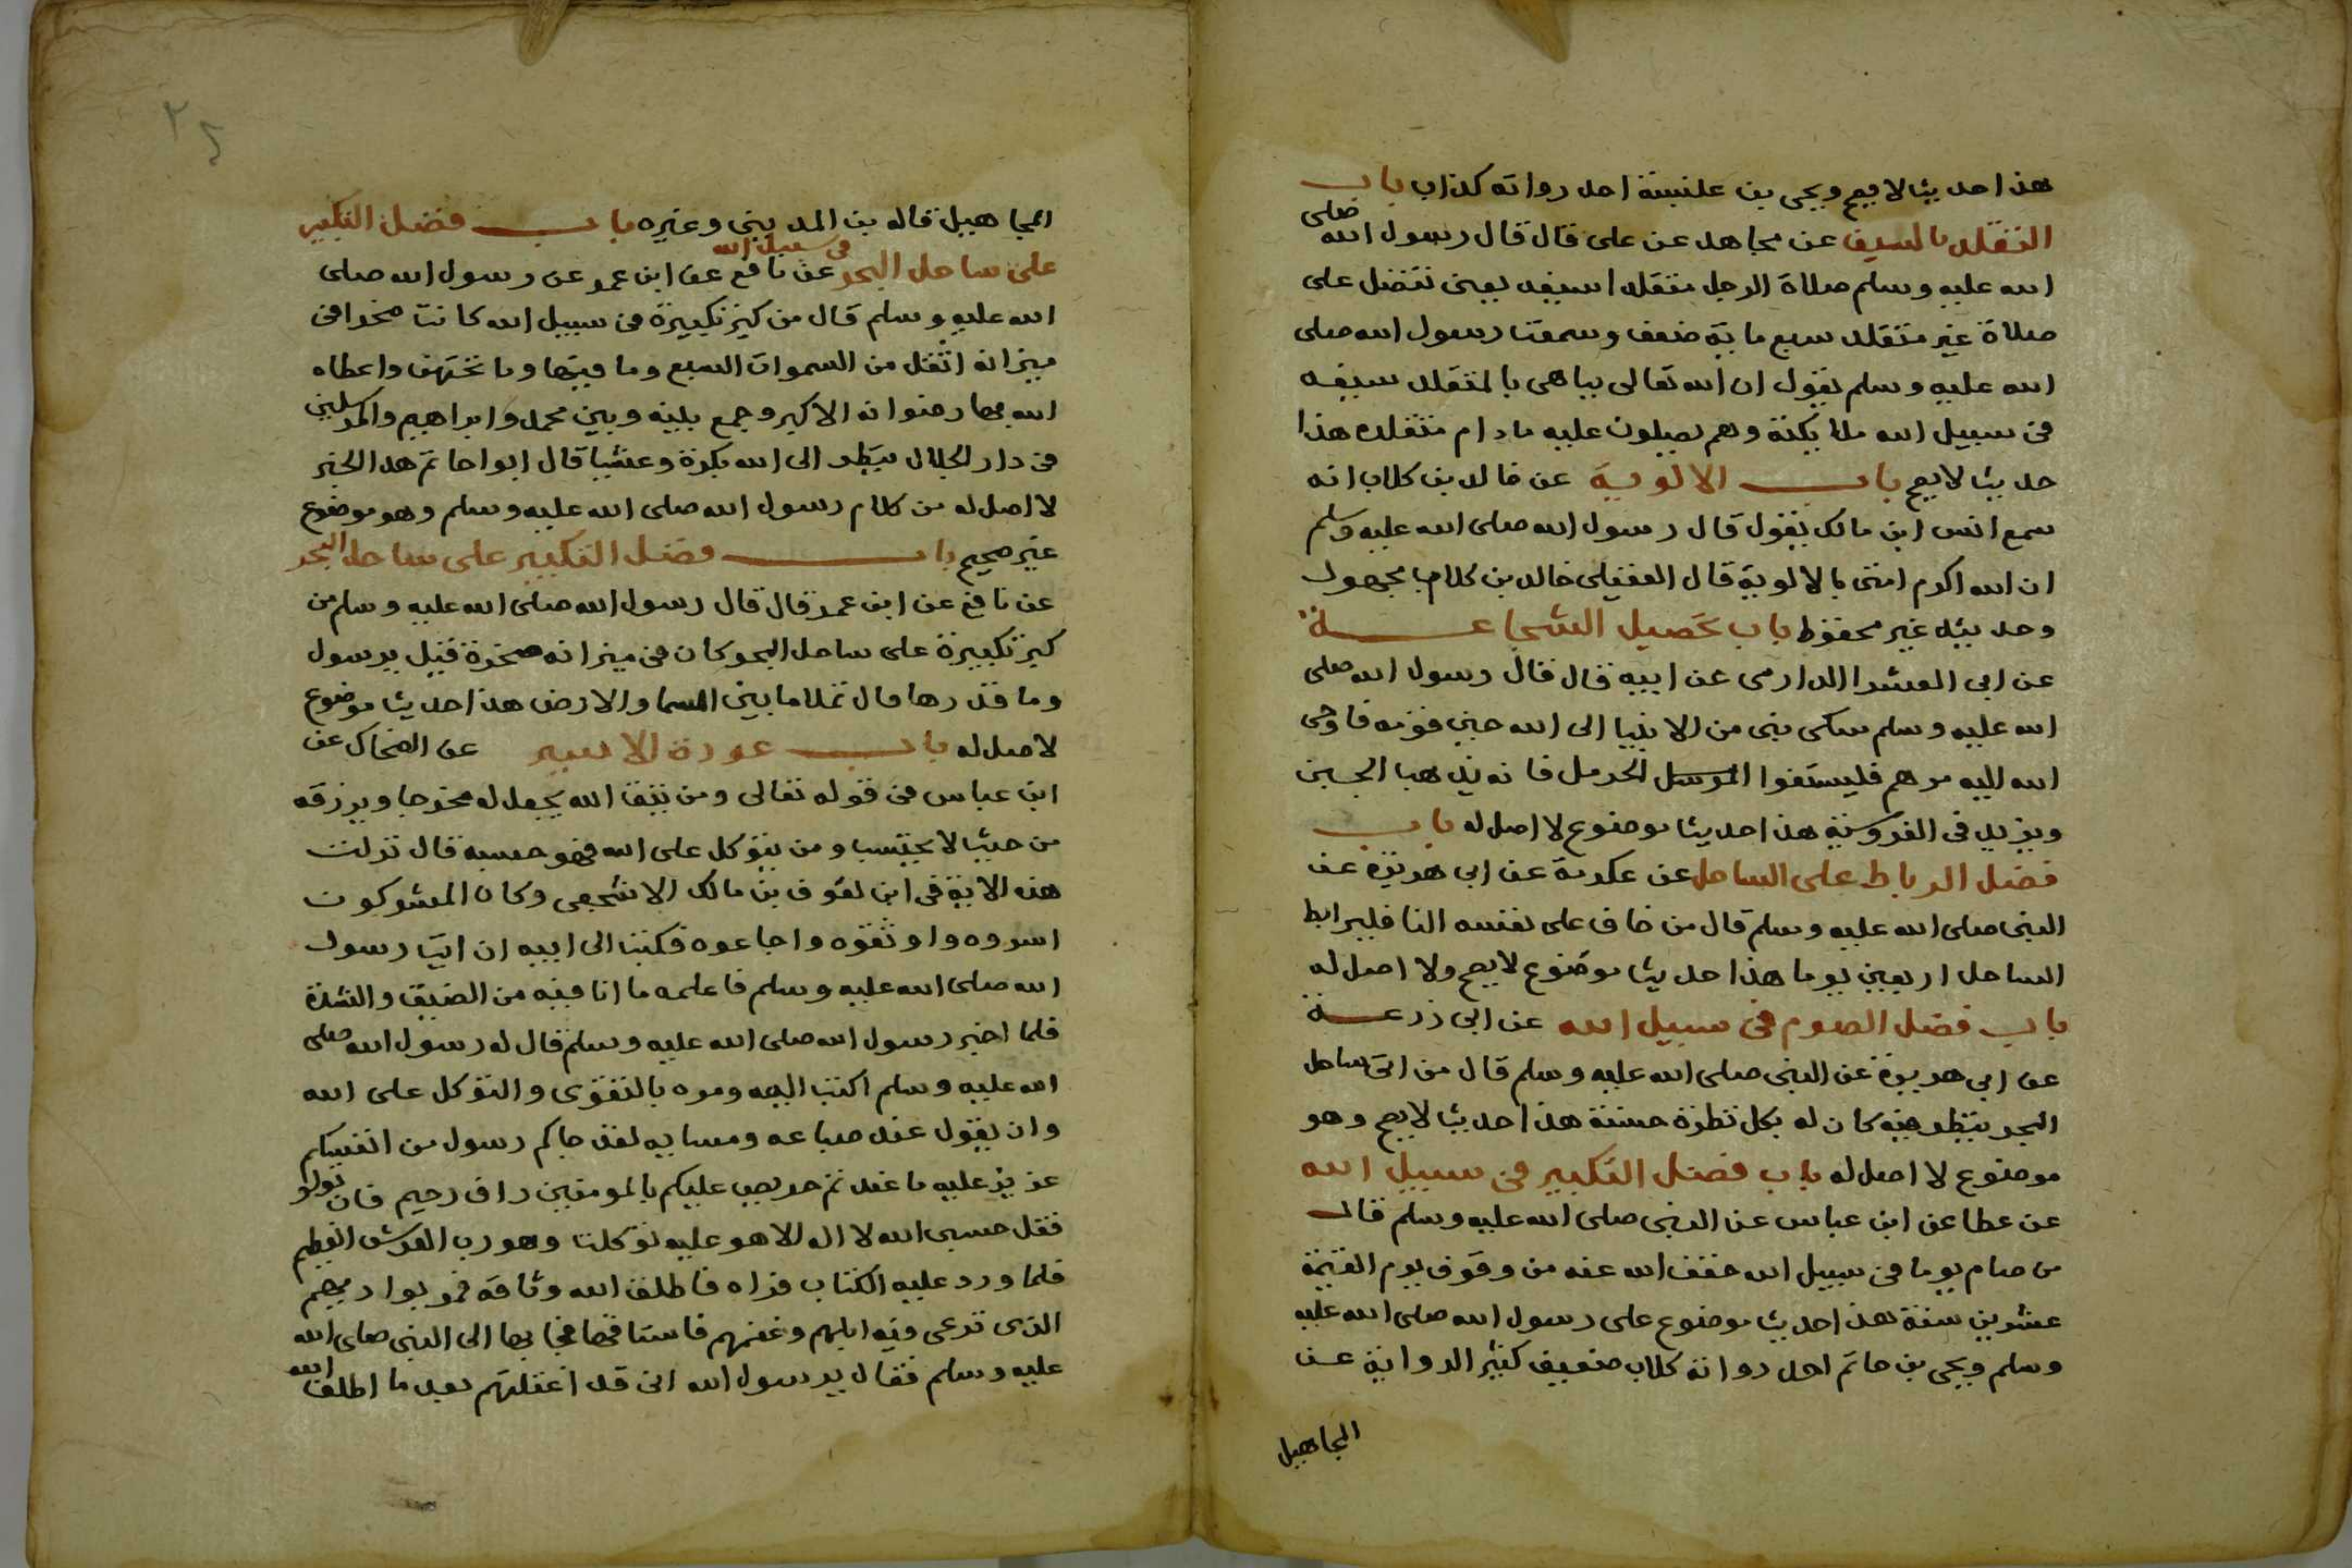 هذا حديث لا يصح ويحيى بن عنبسة احد رواته كذاب باب
التقلد بالسيف عن مجاهد عن على قال قال رسول الله صلى
الله عليه وسلم صلاة الرجل متقلدا سيفه يعنى تفضل على
صلاة غير متقلد سبع ماية ضعف وسمعت رسول الله صلى
الله عليه وسلم يقول ان الله تعالى يباهى بالمتقلد سيفه
فى سبيل الله ملايكته وهم يصلون عليه مادام متقلده هذا
حديث لا يصح باب الالوية عن خالد بن كلاب انه
سمع انس ابن مالك يقول قال رسول الله صلى الله عليه وسلم
ان الله اكرم امتى بالالوية قال العقيلى خالد بن كلاب مجهول
وحديثه غير محفوظ باب تحصيل الشجاعة
عن ابى العشرا الدارمى عن ابيه قال قال رسول الله صلى
الله عليه وسلم شكى نبى من الانبيا الى الله جبن قومه فاوحى
الله اليه مرهم فليستفوا الحرمل فانه يذهب الجبن
ويزيد فى الفروسية هذا حديث موضوع لا اصل له باب
فضل الرباط على الساحل عن عكرمة عن ابى هريرة عن
النبى صلى الله عليه وسلم قال من خاف على نفسه النا فليرابط
الساحل اربعين يوما هذا حديث موضوع لا يصح ولا اصل له
باب فضل الصوم فى سبيل الله عن ابى زرعة
عن ابى هريرة عن النبى صلى الله عليه وسلم قال من اتى ساحل
البحر ينظر فيه كان له بكل نظرة حسنة هذا حديث لا يصح وهو
موضوع لا اصل له باب فضل التكبير فى سبيل الله
عن عطا عن ابن عباس عن النبى صلى الله عليه وسلم قال
من صام يوما فى سبيل الله خفف الله عنه من وقوف يوم القيمة
عشرين سنة هذا حديث موضوع على رسول الله صلى الله عليه
وسلم ويحيى بن حاتم احد رواته كلاب ضعيف كثير الرواية عن
المجاهيل
٢٤
المجاهيل قاله بن المدينى وغيره باب فضل التكبير
فى سبيل الله
على ساحل البحر عن نافع عن ابن عمر عن رسول الله صلى
الله عليه وسلم قال من كبر تكبيرة فى سبيل الله كانت صخرا فى
ميزانه اثقل من السموات السبع وما فيها وما تحتهن واعطاه
الله بها رضوانه الاكبر وجمع بينه وبين محمد وابراهيم والمرسلين
فى دار الجلال ينظر الى الله بكرة وعشيا قال ابوا حاتم هذا الخبر
لا اصل له من كلام رسول الله صلى الله عليه وسلم وهو موضوع
غير صحيح باب فضل التكبير على ساحل البحر
عن نافع عن ابن عمر قال قال رسول الله صلى الله عليه وسلم من
كبر تكبيرة على ساحل البحر كان فى ميزانه صخرة قيل يرسول
وما قدرها قال تملا ما بين السما والارض هذا حديث موضوع
لاصل له باب عودة الاسير عن الضحاك عن
ابن عباس فى قوله تعالى ومن يتق الله يجعل له مخرجا ويرزقه
من حيث لا يحتسب ومن يتوكل على الله فهو حسبه قال نزلت
هذه الاية فى ابن لعوف بن مالك الاشجعى وكان المشركون
اسروه واوثقوه واجاعوه فكتب الى ابيه ان ايت رسول
الله صلى الله عليه وسلم فاعلمه ما انا فيه من الضيق والشدة
فلما اخبر رسول الله صلى الله عليه وسلم قال له رسول الله صلى
الله عليه وسلم اكتب اليه ومره بالتقوى والتوكل على الله
وان يقول عند صباحه ومسايه لقد جاكم رسول من انفسكم
عزيز عليه ما عندتم حريص عليكم بالمومنين راف رحيم فان تولو
فقل حسبى الله لا اله الا هو عليه توكلت وهو رب العرش العظيم
فلما ورد عليه الكتاب قراه فاطلق الله وثاقه فمر بواديهم
الذى ترعى فيه ابلهم وغنمهم فاستاقها فجا بها الى النبى صلى الله
عليه وسلم فقال يرسول الله انى قد اغفلتهم بعد ما اطلق الله